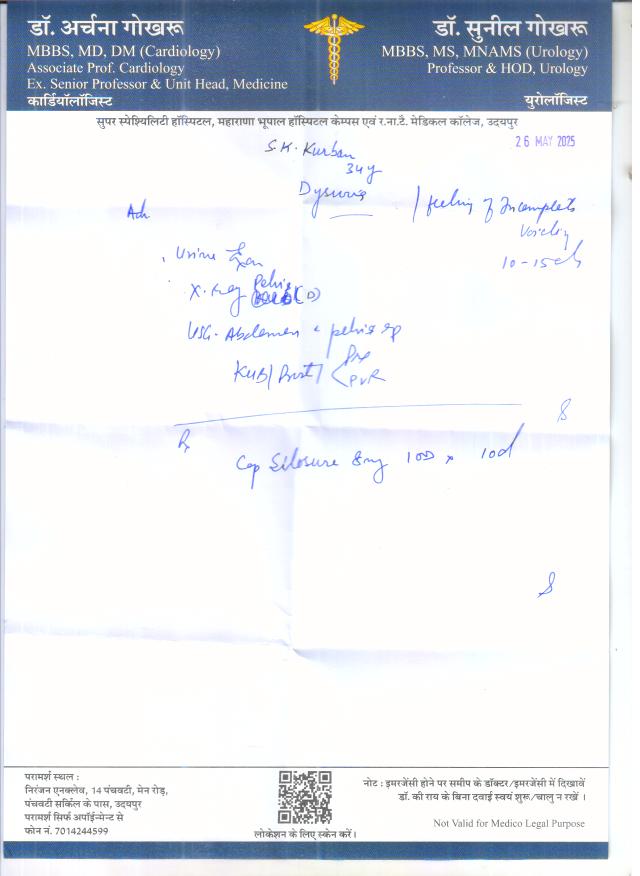 डॉ. अर्चना गोखरू
MBBS, MD, DM (Cardiology)
Associate Prof. Cardiology
Ex. Senior Professor & Unit Head, Medicine
कार्डियॉलॉजिस्ट
डॉ. सुनील गोखरू
MBBS, MS, MNAMS (Urology)
Professor & HOD, Urology
युरोलॉजिस्ट
सुपर स्पेश्यिलिटी हॉस्पिटल, महाराणा भूपाल हॉस्पिटल केम्पस एवं र.ना.टै. मेडिकल कॉलेज, उदयपुर
26 MAY 2025
S.K. Kurban
34y
Dysuria / feeling of Incomplete
Voiding
10-15 d
Adv
Urine
X-ray Pelvis
(D)
USG. Abdomen & pelvis
KUB/Prost/ Pre
PVR
Rx
Cap Silosure 8mg 1OD x 10d
परामर्श स्थल :
निरंजन एनक्लेव, 14 पंचवटी, मेन रोड़,
पंचवटी सर्किल के पास, उदयपुर
परामर्श सिर्फ अपॉईन्मेन्ट से
फोन नं. 7014244599
लोकेशन के लिए स्केन करें।
नोट : इमरजेंसी होने पर समीप के डॉक्टर/इमरजेंसी में दिखावें
डॉ. की राय के बिना दवाई स्वयं शुरू/चालु न रखें ।
Not Valid for Medico Legal Purpose